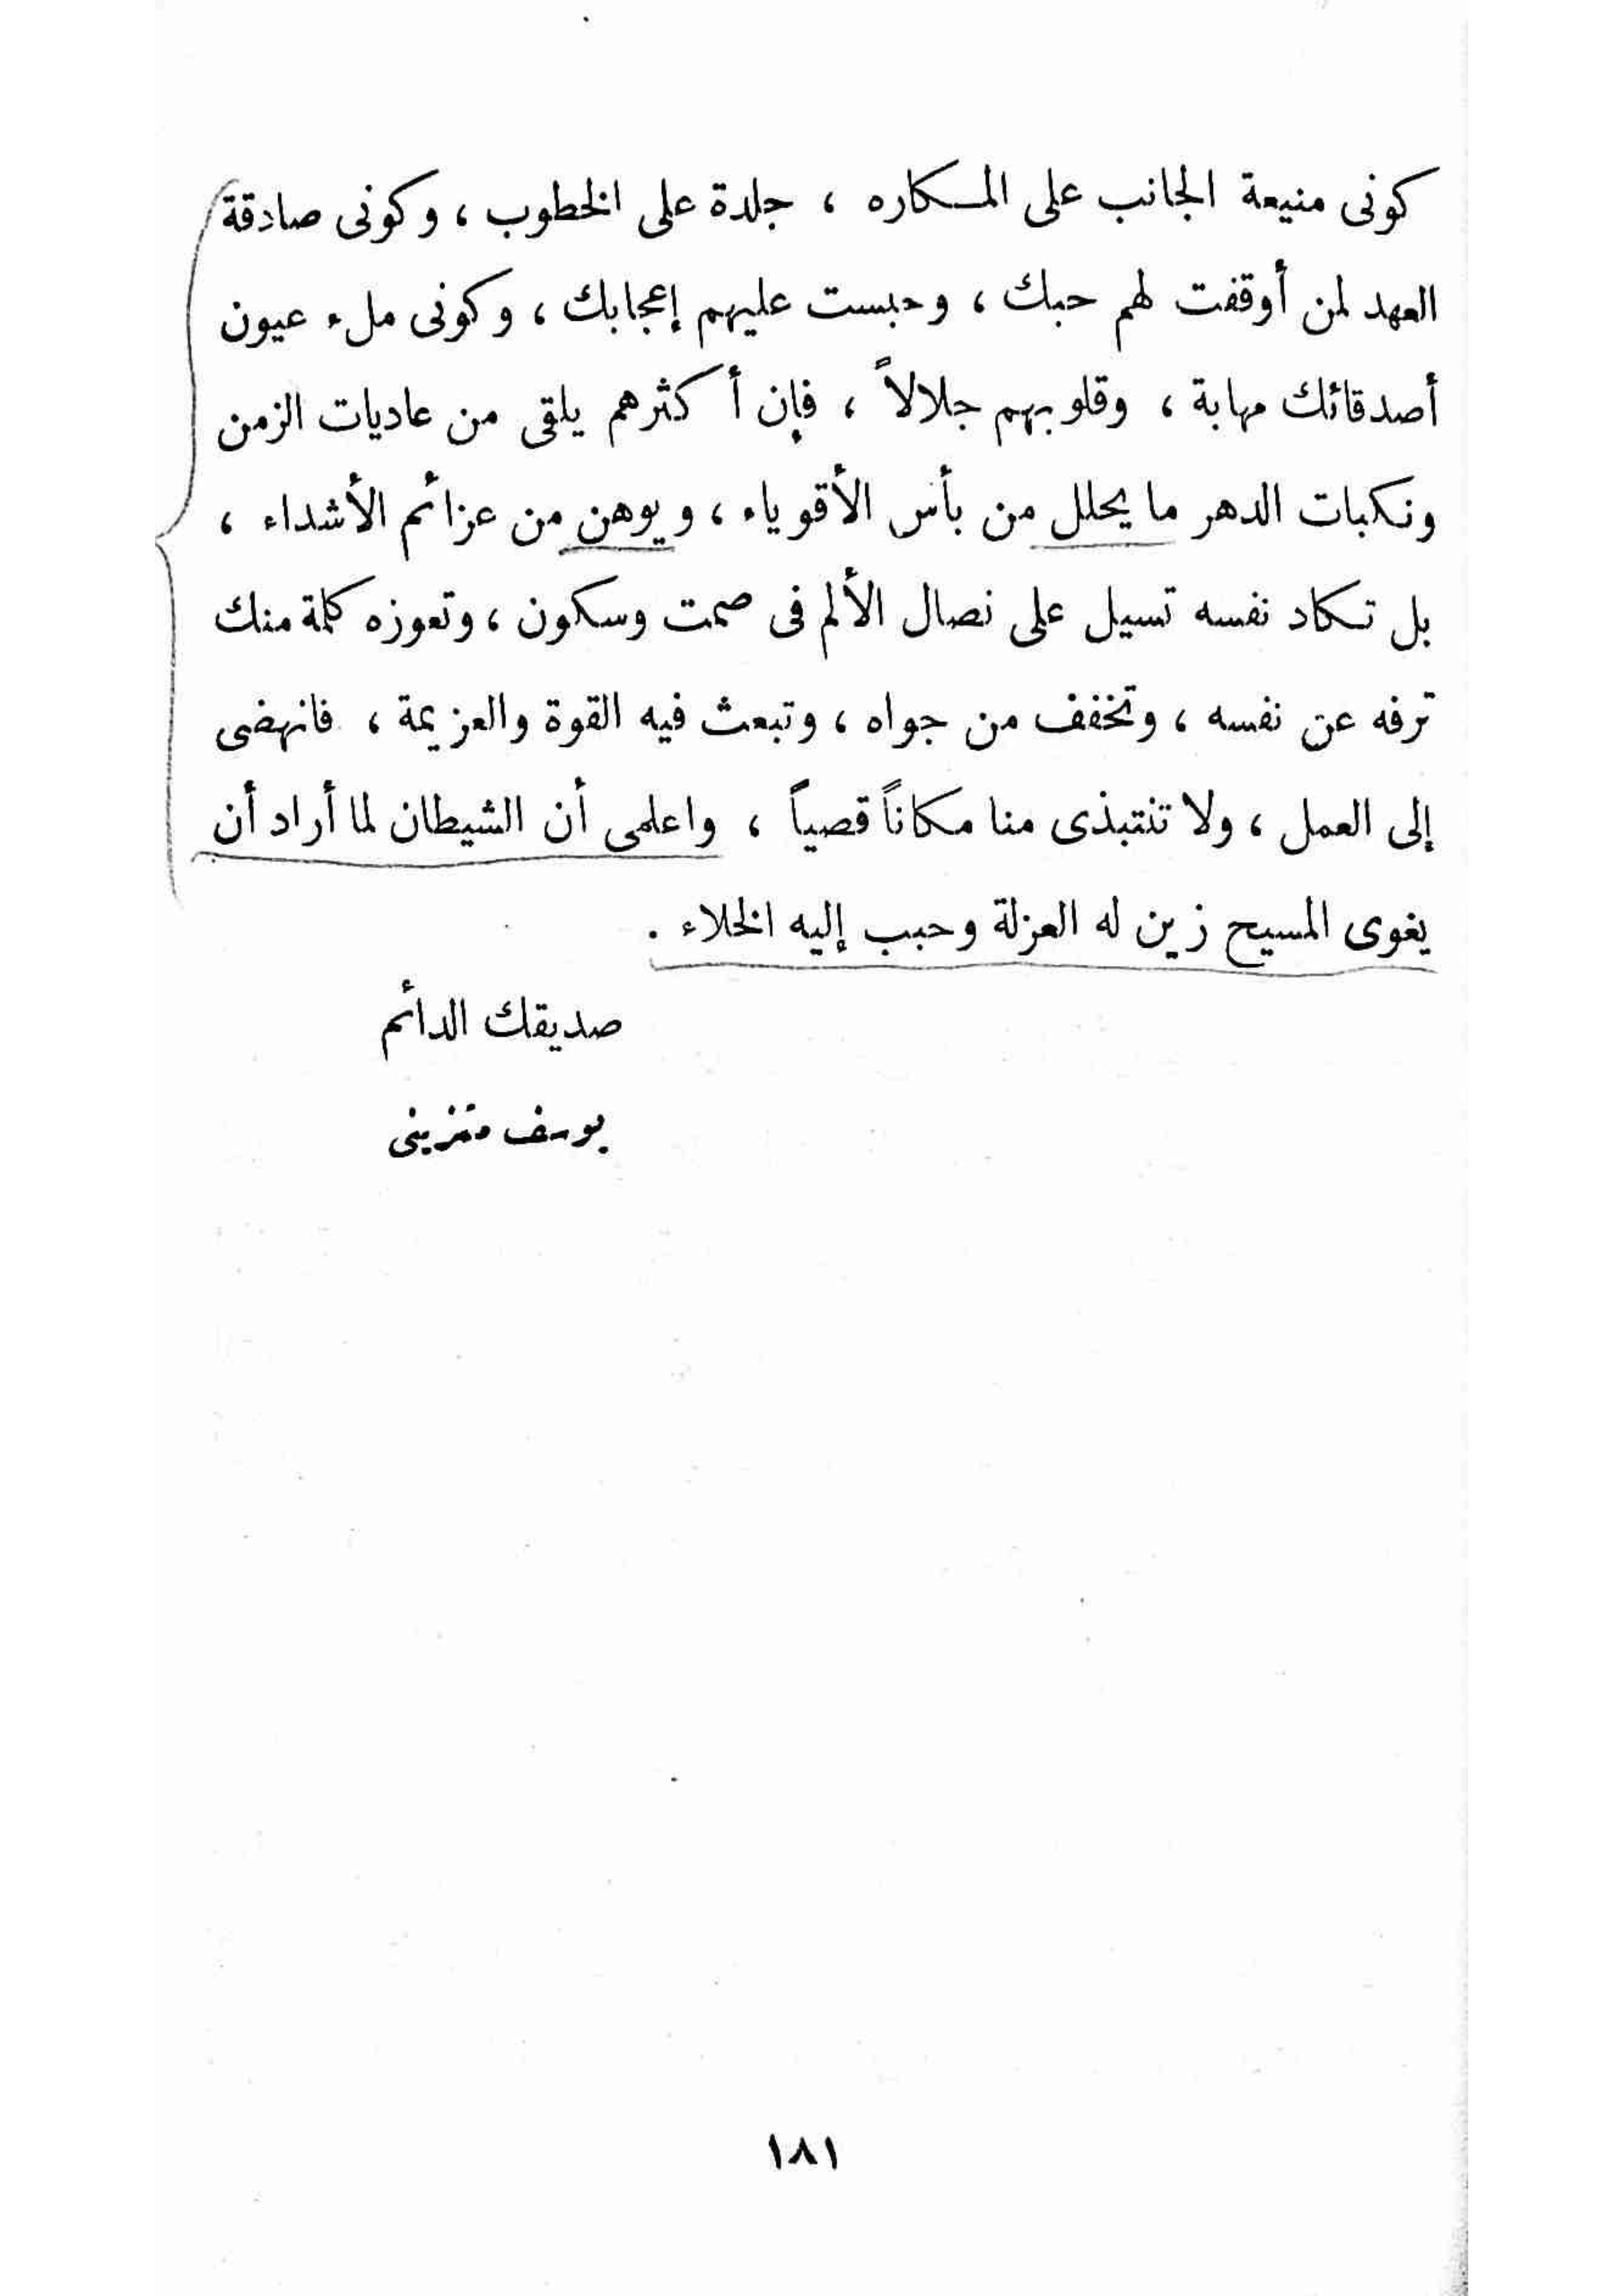 كونى منيعة الجانب على المكاره ، جلدة على الخطوب ، وكونى صادقة
العهد لمن أوقفت لهم حبك ، وحبست عليهم إعجابك ، وكونى ملء عيون
أصدقائك مهابة ، وقلوبهم جلالاً ، فإن أكثرهم يلقى من عاديات الزمن
ونكبات الدهر ما يحلل من بأس الأقوياء ، ويوهن من عزائم الأشداء ،
بل تكاد نفسه تسيل على نصال الألم فى صمت وسكون ، وتعوزه كلمة منك
ترفه عن نفسه ، وتخفف من جواه ، وتبعث فيه القوة والعزيمة ، فانهضى
إلى العمل ، ولا تنتبذى منا مكاناً قصياً ، واعلمى أن الشيطان لما أراد أن
يغوى المسيح زين له العزلة وحبب إليه الخلاء .
صديقك الدائم
يوسف متزينى
١٨١